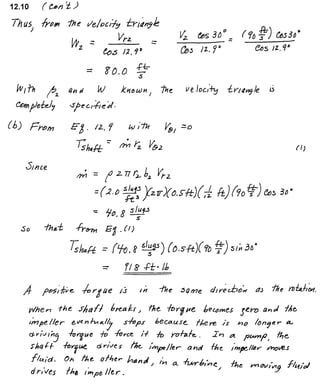 12.10 (con't)
Thus, from the velocity triangle
W₂ = Vr2 / cos 12.9° = V₂ cos 30° / cos 12.9° = (90 ft/s) cos 30° / cos 12.9°
= 80.0 ft/s
With β₂ and W known, the velocity triangle is
completely specified.
(b) From Eq. 12.9 with Vθ1 = 0
Tshaft = ṁ r₂ Vθ2 (1)
Since
ṁ = ρ 2π r₂ b₂ Vr2
= (2.0 slugs/ft³)(2π)(0.5 ft)(1/12 ft)(90 ft/s) cos 30°
= 40.8 slugs/s
So that from Eq. (1)
Tshaft = (40.8 slugs/s)(0.5 ft)(90 ft/s) sin 30°
= 918 ft·lb
A positive torque is in the same direction as the rotation.
When the shaft breaks, the torque becomes zero and the
impeller eventually stops because there is no longer a
driving torque to force it to rotate. In a pump, the
shaft torque drives the impeller and the impeller moves
fluid. On the other hand, in a turbine, the moving fluid
drives the impeller.